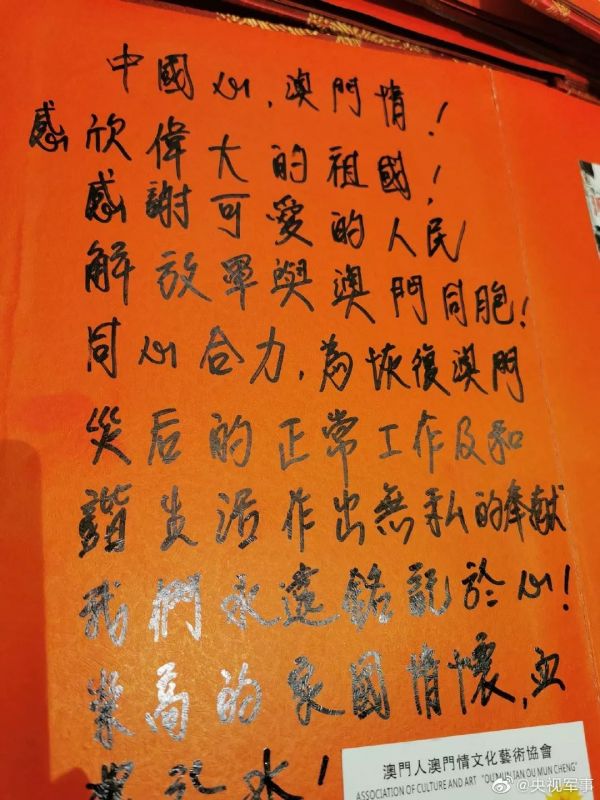 中國心,澳門情!
感欣偉大的祖國!
感謝可愛的人民
解放軍與澳門同胞!
同心合力,為恢復澳門
災后的正常工作及和
諧生活作出無私的奉献
我們永遠銘記於心!
崇高的家國情懷,血
於水!
澳門人澳門情文化藝術協會
ASSOCIATION OF CULTURE AND ART "OU MUN IAN OU MUN CHENG"
@央视军事